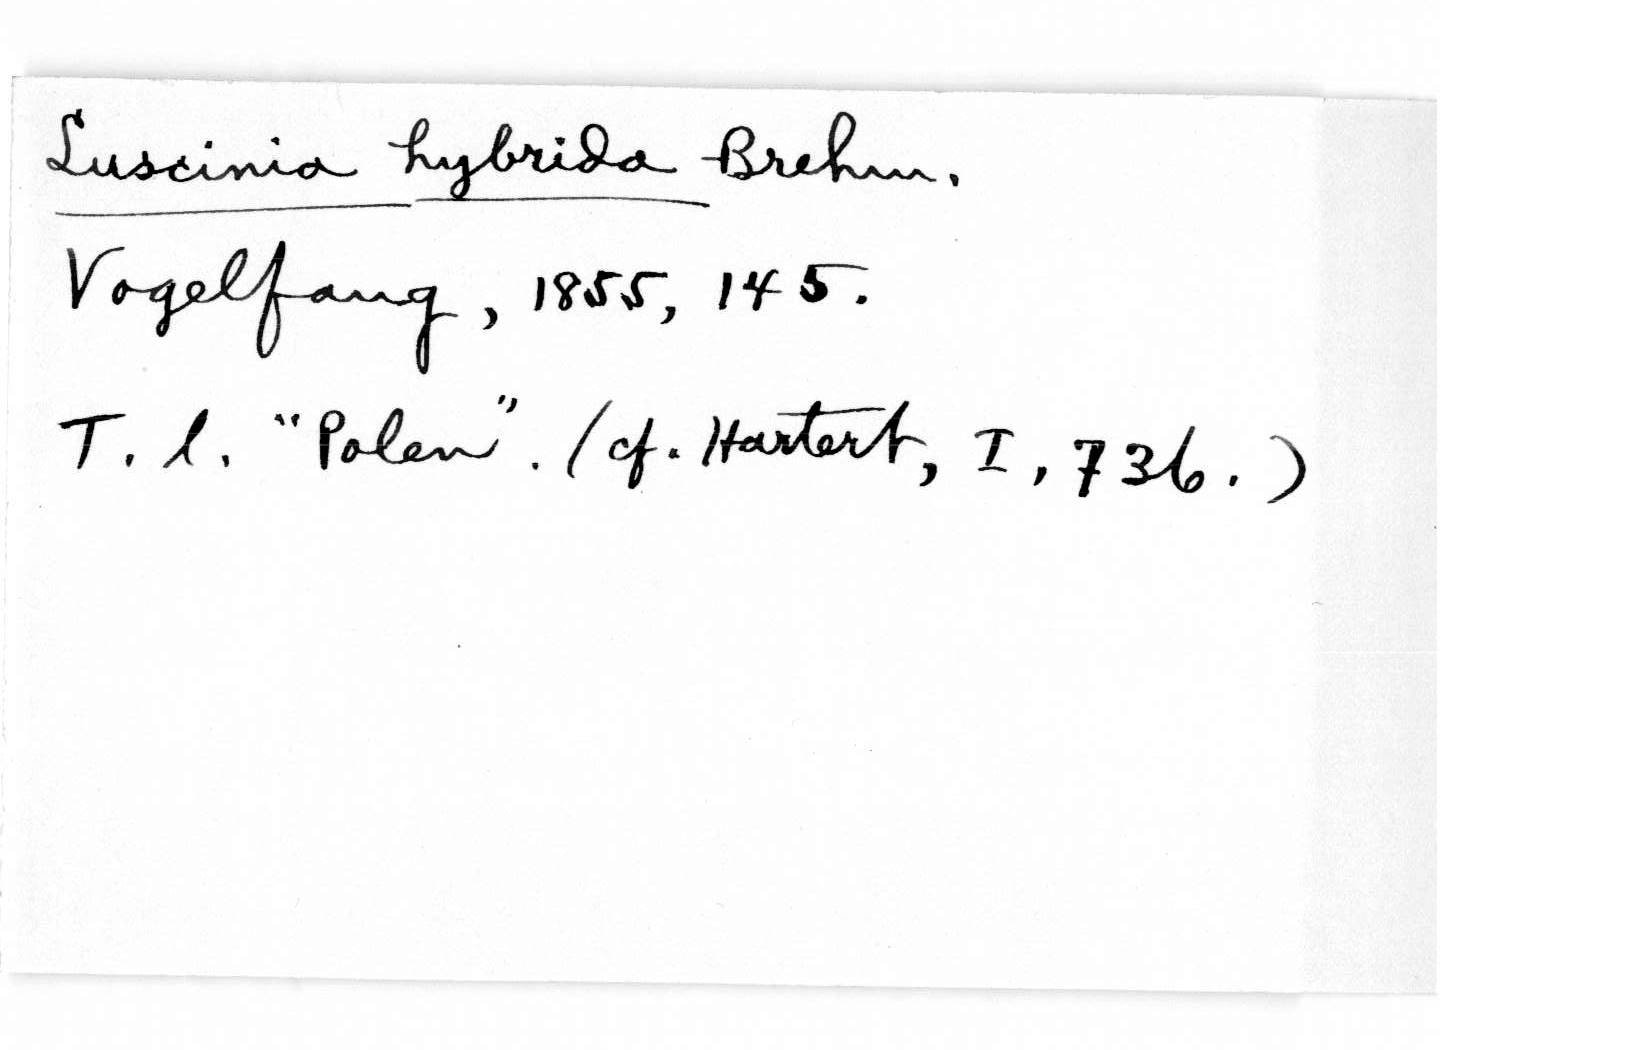 Luscinia hybrida Brehm.
Vogelfang, 1855, 145.
T. l. "Polen". (cf. Hartert, I, 736.)